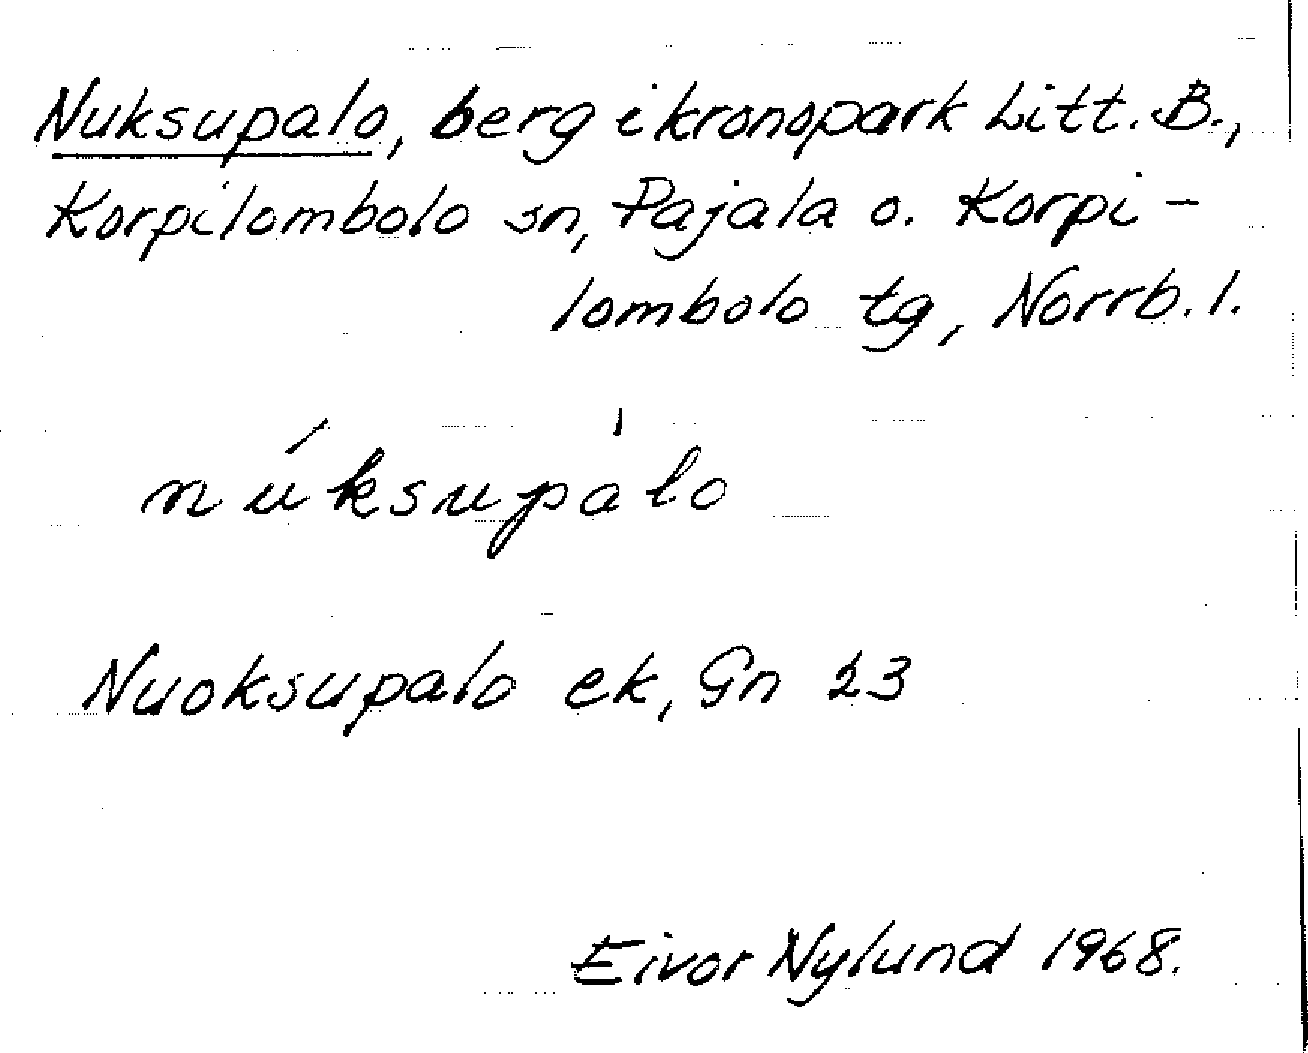 Nuksupalo, berg i kronopark Litt. B.,
Korpilombolo sn, Pajala o. Korpi-
lombolo tg, Norrb. l.
núksupàlo
Nuoksupalo ek, Gn 23
Eivor Nylund 1968.